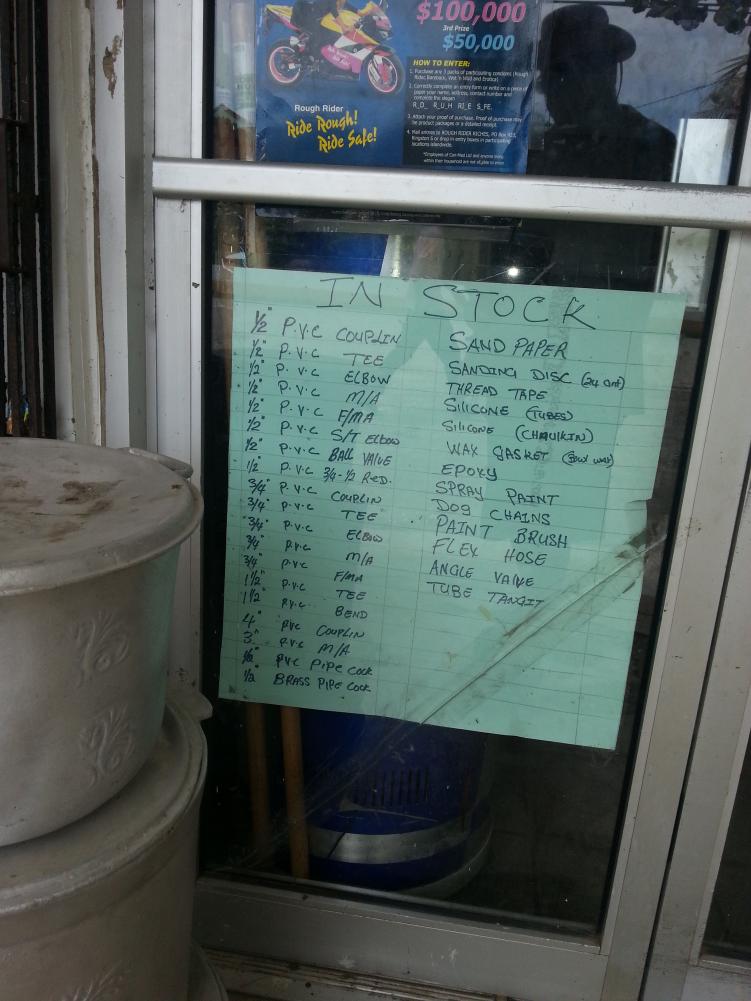 $100,000
3rd Prize
$50,000
HOW TO ENTER:
1. Purchase any 3 packs of participating condoms (Rough
Rider, Bareback, Wet 'n Wild and Erotica)
2. Correctly complete an entry form or write on a piece of
paper your name, address, contact number and
complete the slogan
R_D_ R_UH RI_E S_FE.
3. Attach your proof of purchase. Proof of purchase may
be product packages or a detailed receipt.
4. Mail entries to ROUGH RIDER RICHES, PO Box
Kingston 6 or drop in entry boxes in participating
locations islandwide.
Rough Rider
Ride Rough!
Ride Safe!
IN STOCK
1/2" P.V.C COUPLIN
1/2" P.V.C TEE
1/2" P.V.C ELBOW
1/2" P.V.C M/A
1/2" P.V.C F/MA
1/2" P.V.C S/T ELBOW
1/2" P.V.C BALL VALVE
1/2 P.V.C 3/4-1/2 RED.
3/4" P.V.C COUPLIN
3/4" P.V.C TEE
3/4" P.V.C ELBOW
3/4" P.V.C M/A
3/4" P.V.C F/MA
1 1/2" P.V.C TEE
1 1/2" P.V.C BEND
4" PVC COUPLIN
3" PVC M/A
1/2" PVC PIPE COCK
1/2 BRASS PIPE COCK
SAND PAPER
SANDING DISC (24 GRIT)
THREAD TAPE
SILICONE (TUBES)
SILICONE (CHAULKIN)
WAX GASKET (BOWL WAX)
EPOXY
SPRAY PAINT
DOG CHAINS
PAINT BRUSH
FLEX HOSE
ANGLE VALVE
TUBE TANGIT